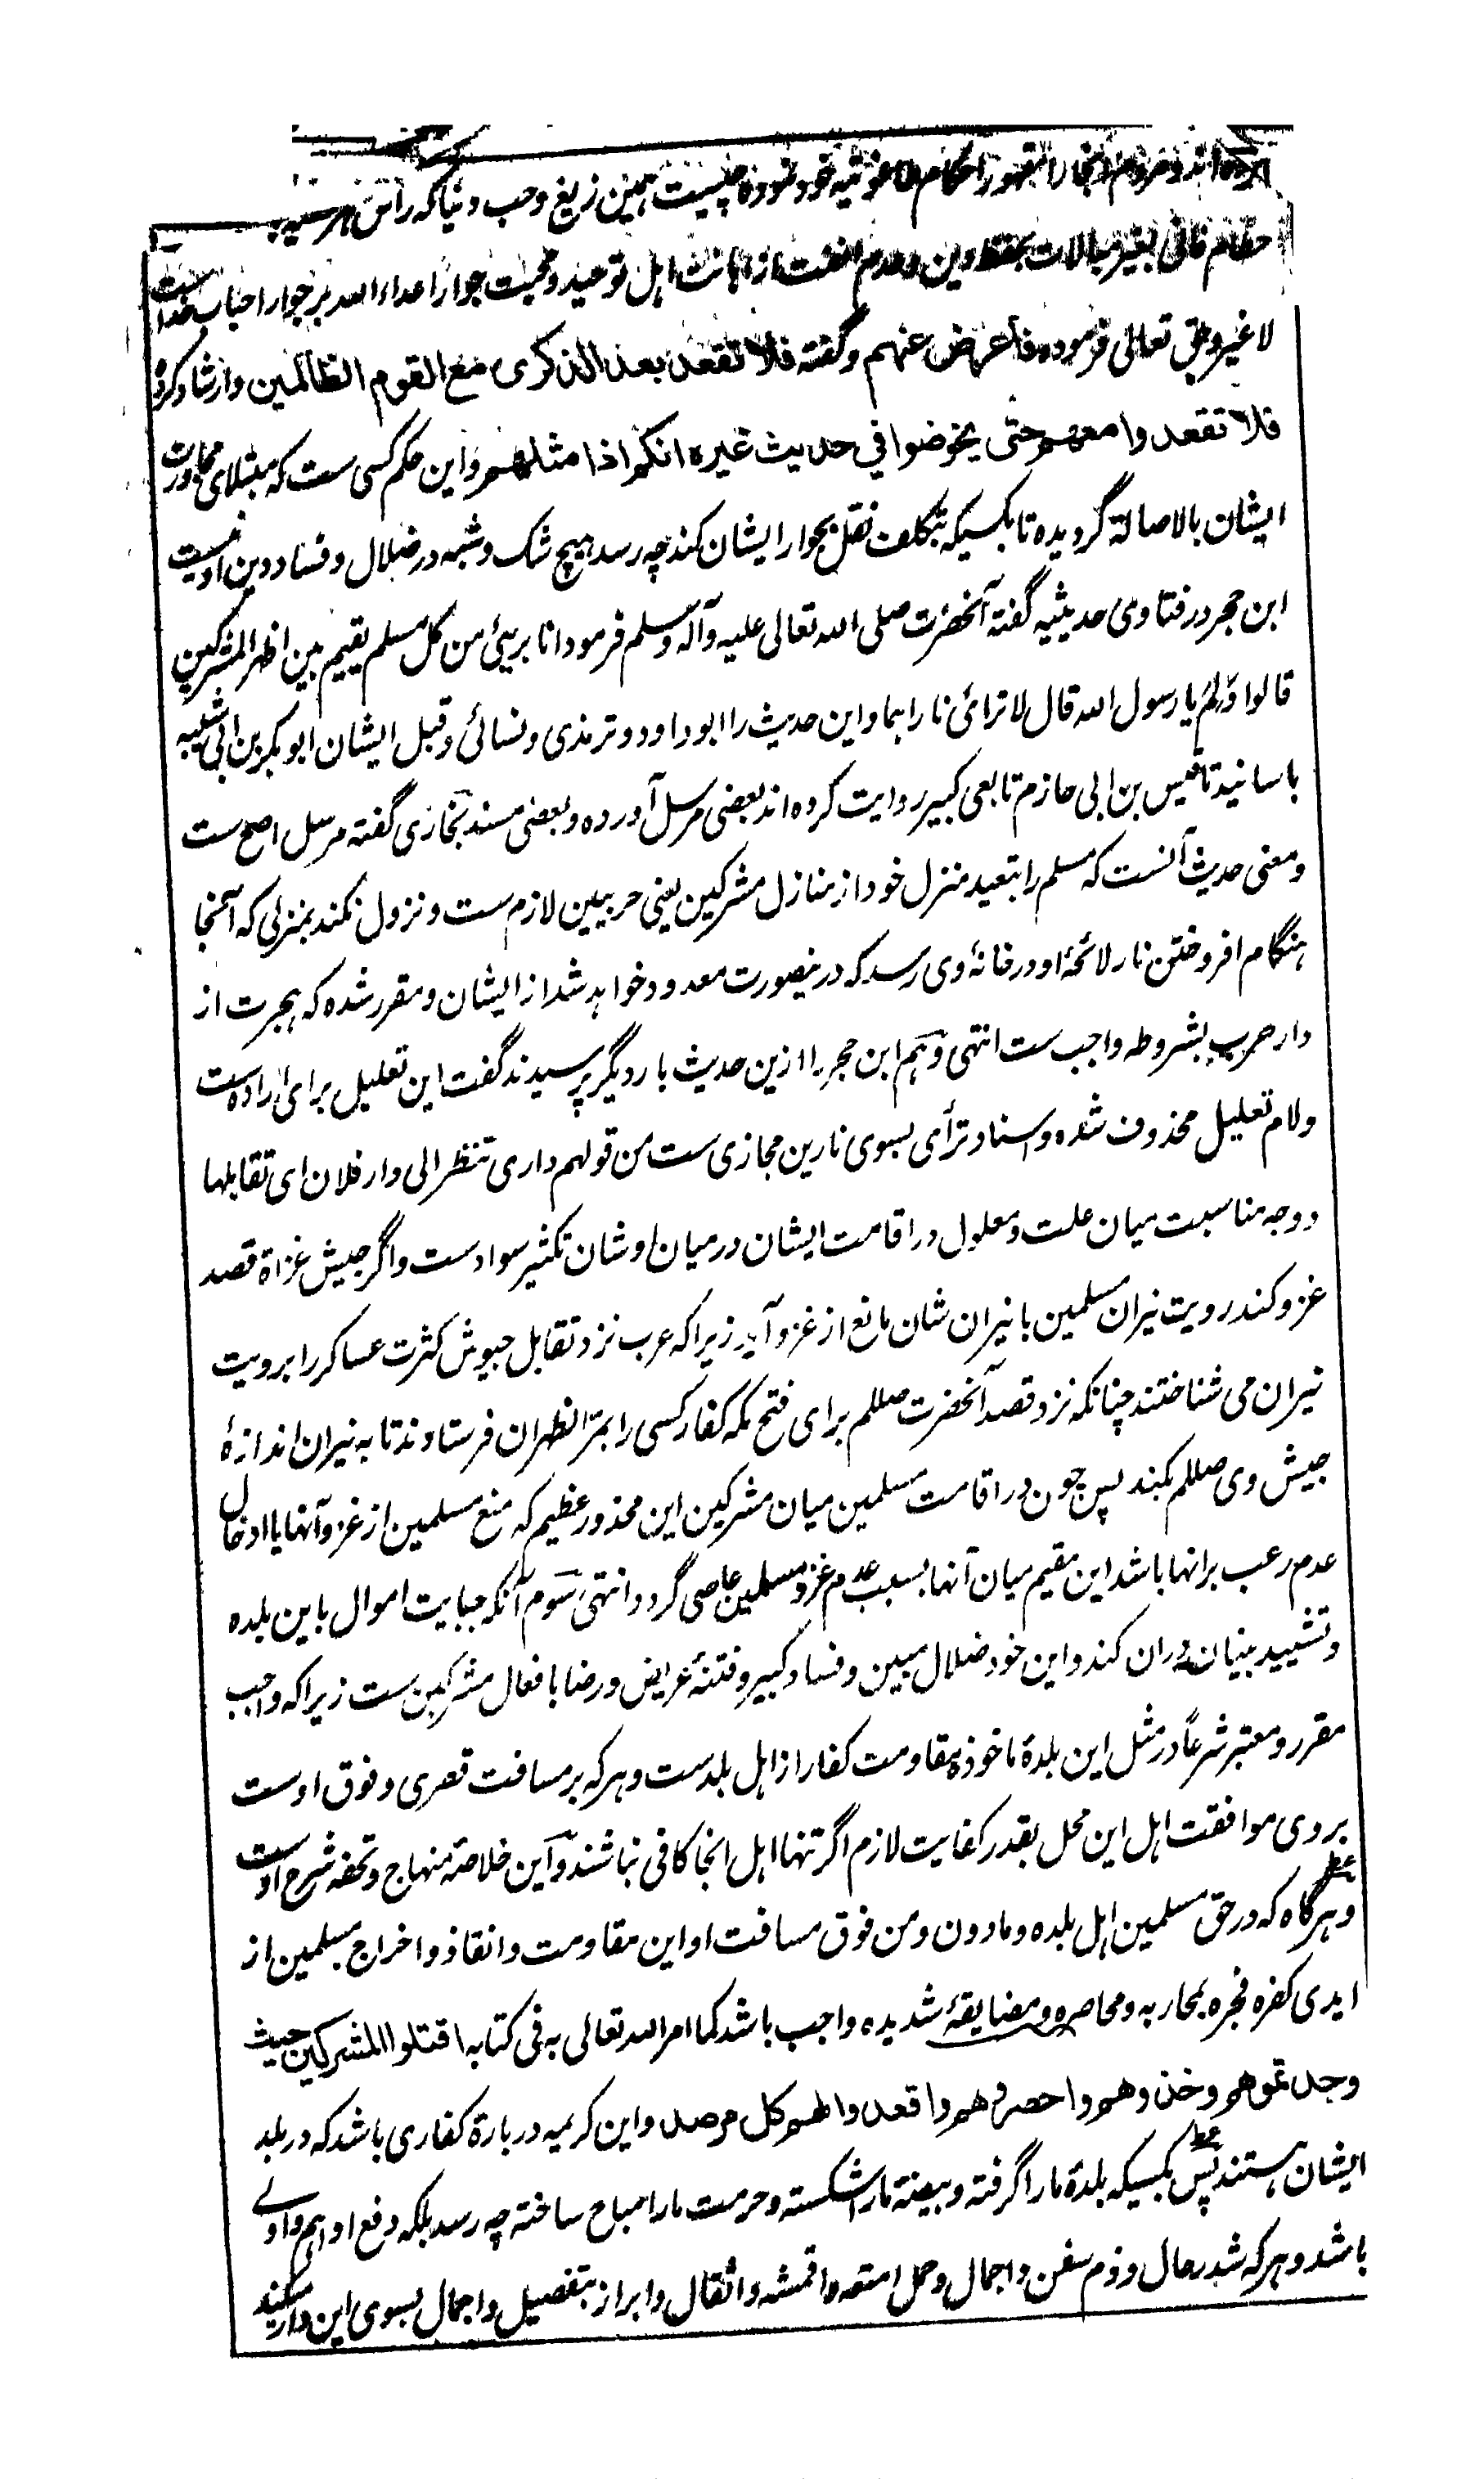 کرده اند و مردم آنجا را مقهور احکام طاغوتیه خود نموده چیست همین زیغ و حب دنیا که رأس هر
حطام فانی بغیر مبالات بحفظ دین و عدم انفت از اهانت اهل توحید و محبت جوار اعداء الله بر جوار احباب خداست
لا غیر و حق تعالی فرموده فأعرض عنهم و گفته فلا تقعد بعد الذکری مع القوم الظالمین و ارشاد کرده
فلا تقعدوا معهم حتی یخوضوا فی حدیث غیره انکم اذا مثلهم و این حکم کسی ست که مبتلای مجاورت
ایشان بالاصالة گردیده تا بکسیکه بتکلف نقل بجوار ایشان کند چه رسد هیچ شک و شبه در ضلال و فساد دین او نیست
ابن حجر در فتاوی حدیثیه گفته آنحضرت صلی الله تعالی علیه وآله وسلم فرمود انا بریئ من کل مسلم یقیم بین اظهر المشرکین
قالوا ولم یا رسول الله قال لا ترائ ناراهما و این حدیث را ابو داود و ترمذی و نسائی و قبل ایشان ابو بکر بن ابی شیبه
باسانید تا قیس بن ابی حازم تابعی کبیر روایت کرده اند بعضی مرسل آورده و بعضی مسند بخاری گفته مرسل اصح ست
و معنی حدیث آنست که مسلم را بتعید منزل خود از منازل مشرکین یعنی حربیین لازم ست و نزول نکند بمنزلی که آنجا
هنگام افروختن نار لائحۀ او در خانۀ وی رسد که درینصورت معدود خواهد شد از ایشان و مقرر شده که هجرت از
دار حرب بشروطه واجب ست انتهی و هم ابن حجر را ازین حدیث بار دیگر پرسیدند گفت این تعلیل برای اراده است
و لام تعلیل محذوف شده و اسناد ترأی بسوی نارین مجازی ست من قولهم داری تنظر الی دار فلان ای تقابلها
و وجه مناسبت میان علت و معلول در اقامت ایشان درمیان اوشان تکثیر سواد ست و اگر جیش غزاة قصد
غزو کند رویت نیران مسلمین با نیران شان مانع از غزو آید زیرا که عرب نزد تقابل جیوش کثرت عساکر را برویت
نیران می شناختند چنانکه نزد قصد آنحضرت صللم برای فتح مکه کفار کسی را بمر الظهران فرستادند تا به نیران اندازۀ
جیش وی صللم بکند پس چون در اقامت مسلمین میان مشرکین این محذور عظیم که منع مسلمین از غزو آنها یا ادخال
عدم رعب برانها باشد این مقیم میان آنها بسبب عدم غزو مسلمین عاصی گردد انتهی سوم آنکه جبایت اموال باین بلده
و تشیید بنیان دران کند و این خود ضلال مبین و فساد کبیر و فتنۀ عریض و رضا بافعال مشرکین ست زیرا که واجب
مقرر و معتبر شرعاً در مثل این بلدۀ ماخوذه مقاومت کفار از اهل بلد ست و هر که بر مسافت قصری و فوق اوست
بروی موافقت اهل این محل بقدر کفایت لازم اگر تنها اهل انجا کافی نباشند و این خلاصۀ منهاج و تحفه شرح اوست
و هرگاه که در حق مسلمین اهل بلده و مادون و من فوق مسافت او این مقاومت و انقاذ و اخراج مسلمین از
ایدی کفره فجره بمحاربه و محاصره و مضایقۀ شدیده واجب باشد کما امر الله تعالی به فی کتابه اقتلوا المشرکین حیث
وجدتموهم وخذوهم واحصروهم واقعدوا لهم کل مرصد و این کریمه دربارۀ کفاری باشد که در بلد
ایشان هستند پس بکسیکه بلدۀ ما را گرفته و بیضۀ ما را شکسته و حرمت ما را مباح ساخته چه رسد بلکه دفع او اهم و اولے
باشد و هر که شد رحال و زم سفن و اجمال و حمل امتعه و اقمشه و اثقال و ابراز بتفصیل و اجمال بسوی این دار میکند